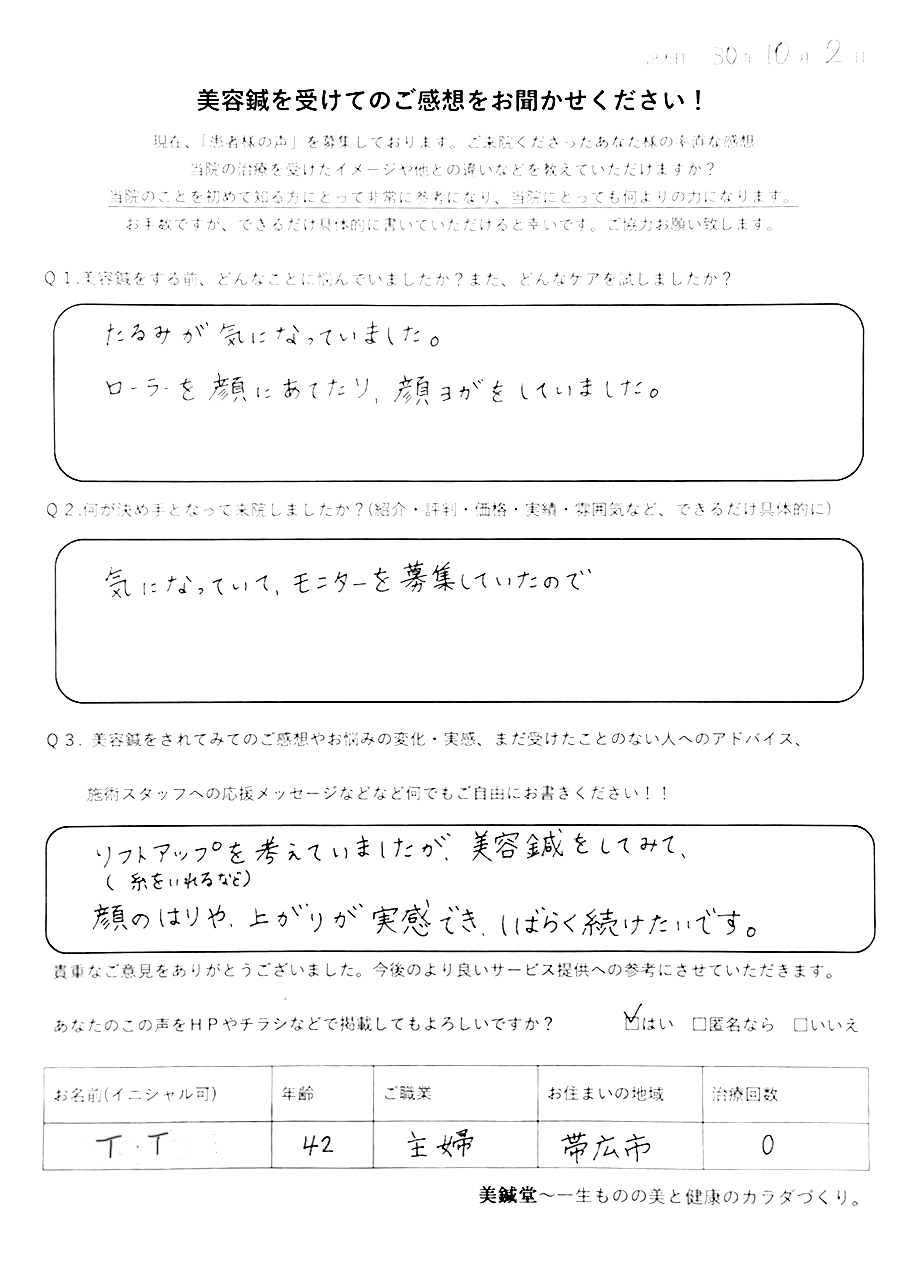 30年10月2日
美容鍼を受けてのご感想をお聞かせください！
現在、「患者様の声」を募集しております。ご来院くださったあなた様の率直な感想
当院の治療を受けたイメージや他との違いなどを教えていただけますか？
当院のことを初めて知る方にとって非常に参考になり、当院にとっても何よりの力になります。
お手数ですが、できるだけ具体的に書いていただけると幸いです。ご協力お願い致します。
Ｑ１.美容鍼をする前、どんなことに悩んでいましたか？また、どんなケアを試しましたか？
たるみが気になっていました。
ローラーを顔にあてたり、顔ヨガをしていました。
Ｑ２.何が決め手となって来院しましたか？(紹介・評判・価格・実績・雰囲気など、できるだけ具体的に)
気になっていて、モニターを募集していたので
Ｑ３. 美容鍼をされてみてのご感想やお悩みの変化・実感、まだ受けたことのない人へのアドバイス、
施術スタッフへの応援メッセージなどなど何でもご自由にお書きください！！
リフトアップを考えていましたが、美容鍼をしてみて、
(糸をいれるなど)
顔のはりや、上がりが実感でき、しばらく続けたいです。
貴重なご意見をありがとうございました。今後のより良いサービス提供への参考にさせていただきます。
あなたのこの声をＨＰやチラシなどで掲載してもよろしいですか？ ☑はい □匿名なら □いいえ
お名前(イニシャル可) 年齢 ご職業 お住まいの地域 治療回数
T.T 42 主婦 帯広市 0
美鍼堂～一生ものの美と健康のカラダづくり。